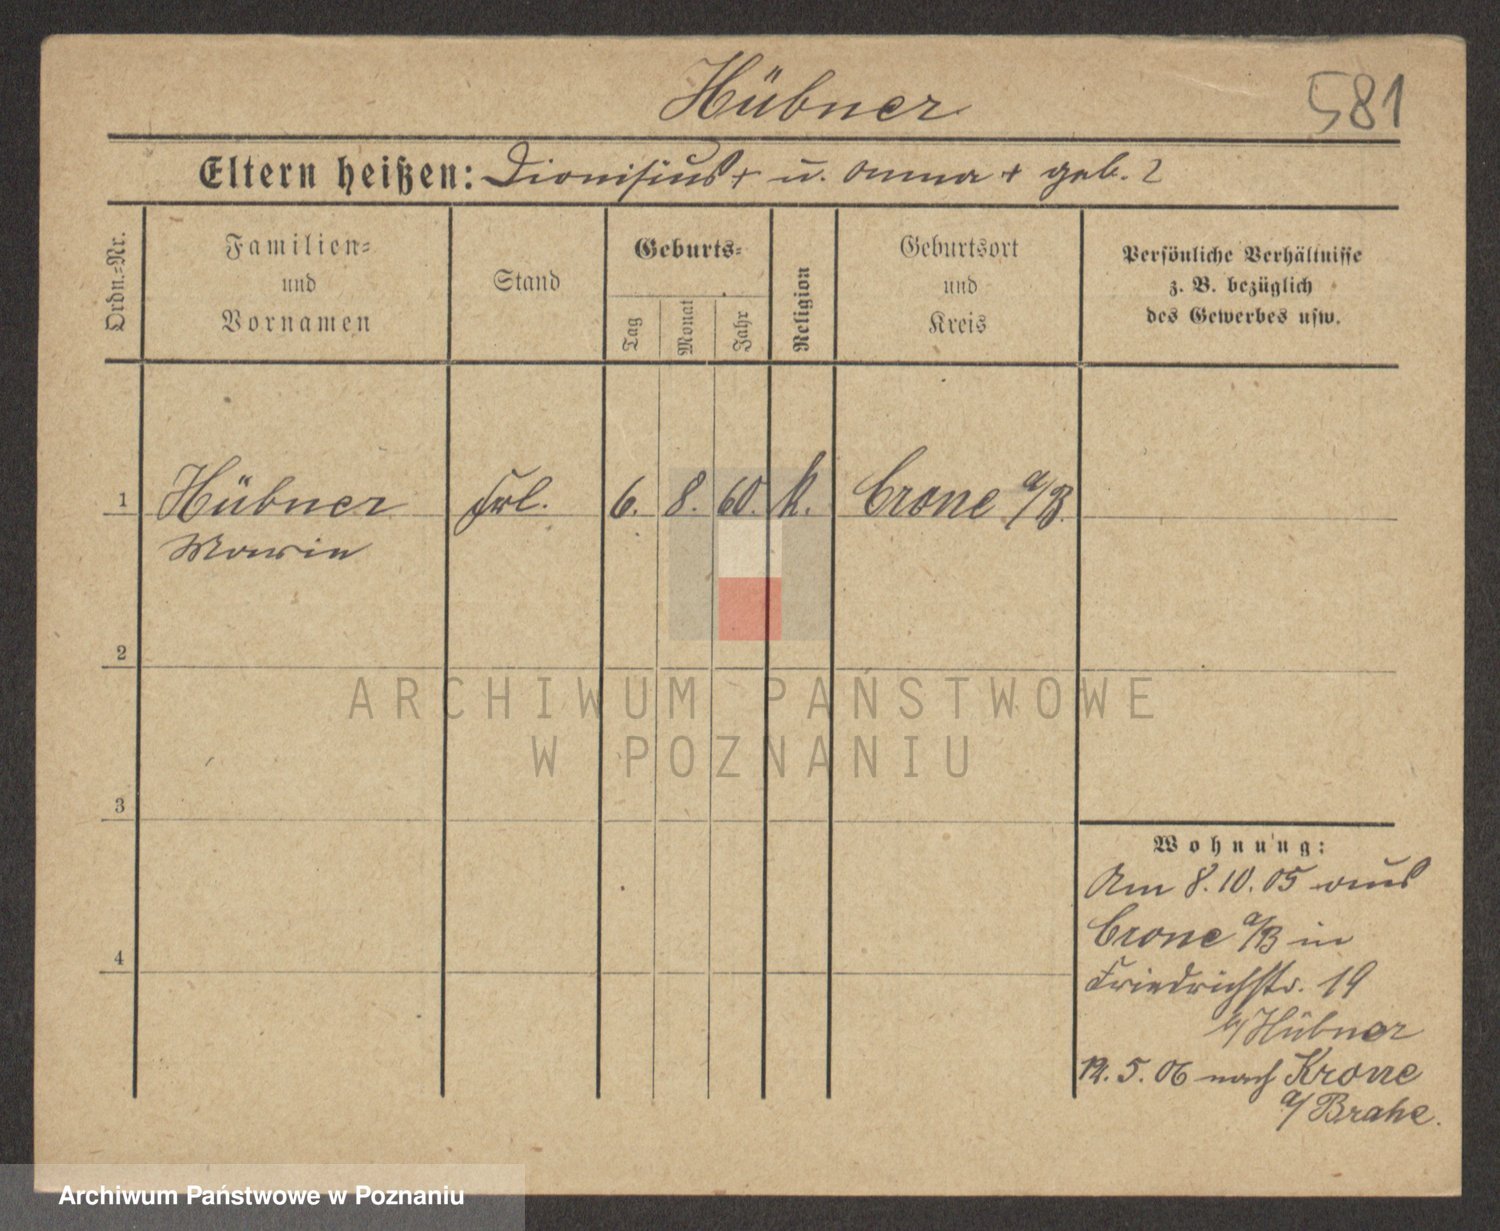 Hübner
581
Eltern heißen: Dionisius + u. Anna + geb. ?
Ordn.-Nr.
Familien-
und
Vornamen
Stand
Geburts-
Tag
Monat
Jahr
Religion
Geburtsort
und
Kreis
Persönliche Verhältnisse
z. B. bezüglich
des Gewerbes usw.
1 Hübner Frl. 6. 8. 60. k. Crone a/B.
Marie
2
ARCHIWUM PAŃSTWOWE
W POZNANIU
3
Wohnung:
Am 8.10.05 aus
Crone a/B in
4
Friedrichstr. 19
b/ Hübner
5. 06 nach Krone
a/ Brahe.
Archiwum Państwowe w Poznaniu